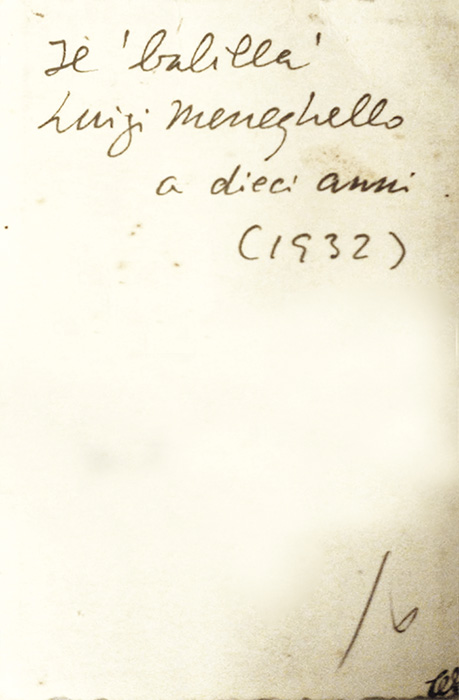 Il 'balilla'
Luigi Meneghello
a dieci anni
(1932)